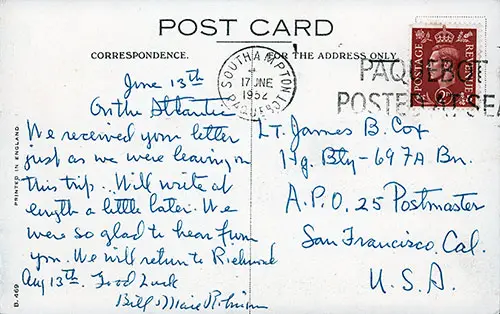 POST CARD
CORRESPONDENCE.
FOR THE ADDRESS ONLY
POSTAGE REVENUE
SOUTHAMPTON
17 JNE
1952
PAQUEBOT
PAQUEBOT
POSTED AT SEA
June 13th
On the Atlantic
We received your letter
just as we were leaving on
this trip. Will write at
length a little later. We
were so glad to hear from
you. We will return to Richmond
Aug 13th. Good Luck
Bill & Marie
Lt. James B. Cox
Hq. Bty - 69 7A Bn.
A.P.O. 25 Postmaster
San Francisco, Cal.
U.S.A.
PRINTED IN ENGLAND
B. 469